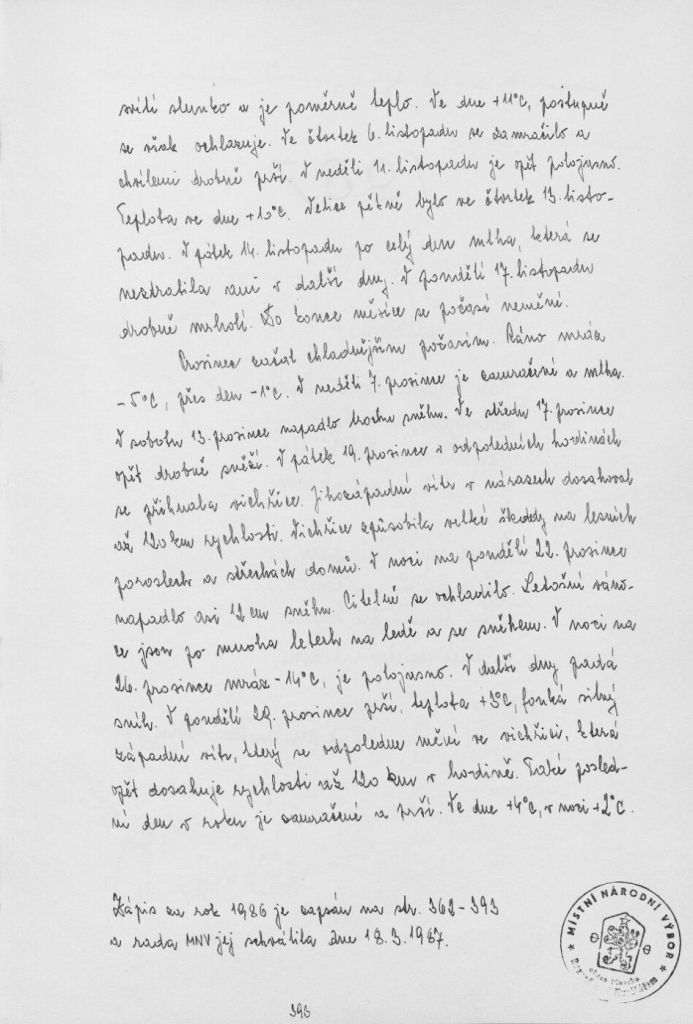 svítí slunko a je poměrně teplo. Ve dne +11°C, postupně
se však ochlazuje. Ve čtvrtek 6. listopadu se zamračilo a
chvílemi drobně prší. V neděli 11. listopadu je opět polojasno.
Teplota ve dne +10°C. Velice pěkně bylo ve čtvrtek 13. listo-
padu. V pátek 14. listopadu po celý den mlha, která se
neztratila ani v další dny. V pondělí 17. listopadu
drobně mrholí. Do konce měsíce se počasí nemění.
Prosinec začal chladnějším počasím. Ráno mráz
-5°C, přes den -1°C. V neděli 7. prosince je zamračené a mlha.
V sobotu 13. prosince napadlo trochu sněhu. Ve středu 17. prosince
opět drobně sněží. V pátek 19. prosince v odpoledních hodinách
se přihnala vichřice. Jihozápadní vítr v nárazech dosahoval
až 120 km rychlosti. Vichřice způsobila velké škody na lesních
porostech a střechách domů. V noci na pondělí 22. prosince
napadlo asi 12 cm sněhu. Citelně se ochladilo. Letošní váno-
ce jsou po mnoha letech na ledě a se sněhem. V noci na
26. prosince mráz -14°C, je polojasno. V další dny padá
sníh. V pondělí 29. prosince prší, teplota +3°C, fouká silný
západní vítr, který se odpoledne mění ve vichřici, která
opět dosahuje rychlosti až 120 km v hodině. Také posled-
ní den v roku je zamračené a prší. Ve dne +4°C, v noci +2°C.
Zápis za rok 1986 je zapsán na str. 362-393
a rada MNV jej schválila dne 18.3.1987.
★ MÍSTNÍ NÁRODNÍ VÝBOR ★
393